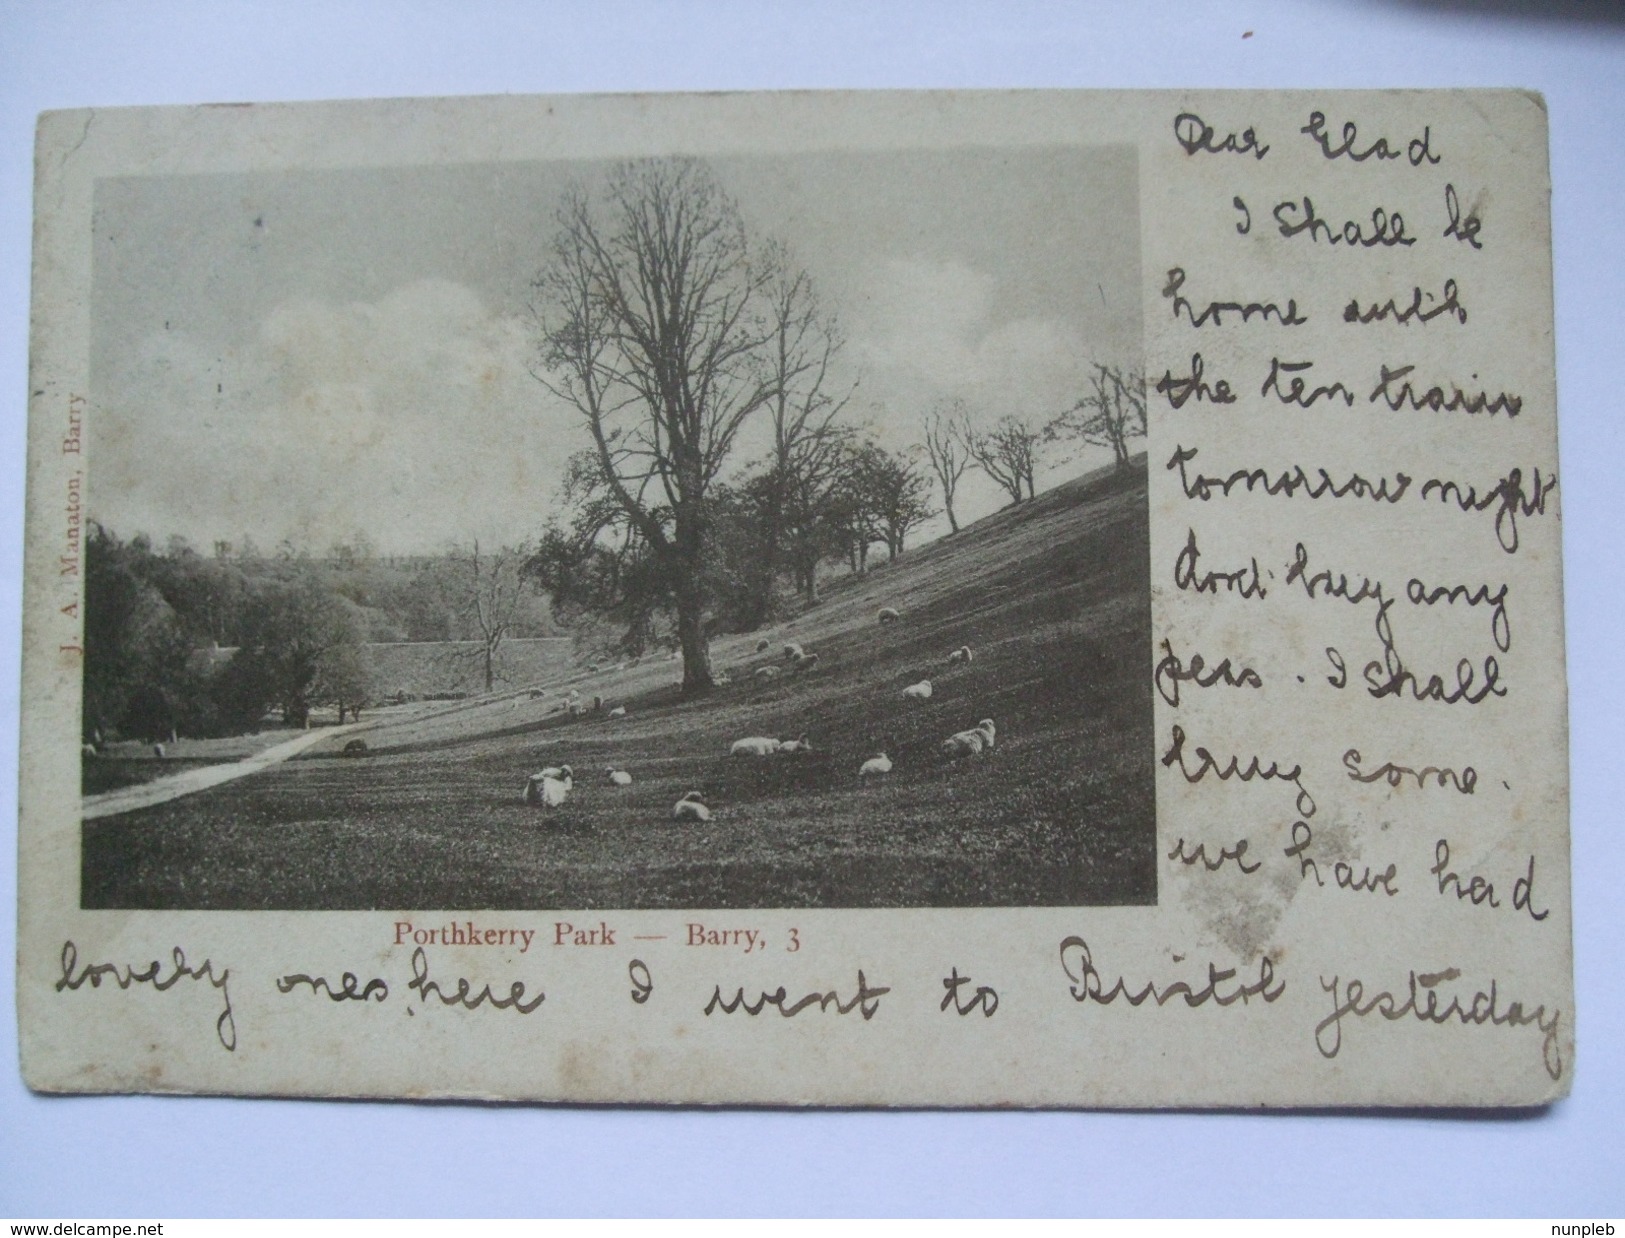 Dear Glad
I shall be
home with
the ten train
tomorrow night
dont buy any
peas. I shall
bring some.
we have had
lovely ones here I went to Bristol yesterday
Porthkerry Park — Barry, 3
J. A. Manaton, Barry
www.delcampe.net
nunpleb